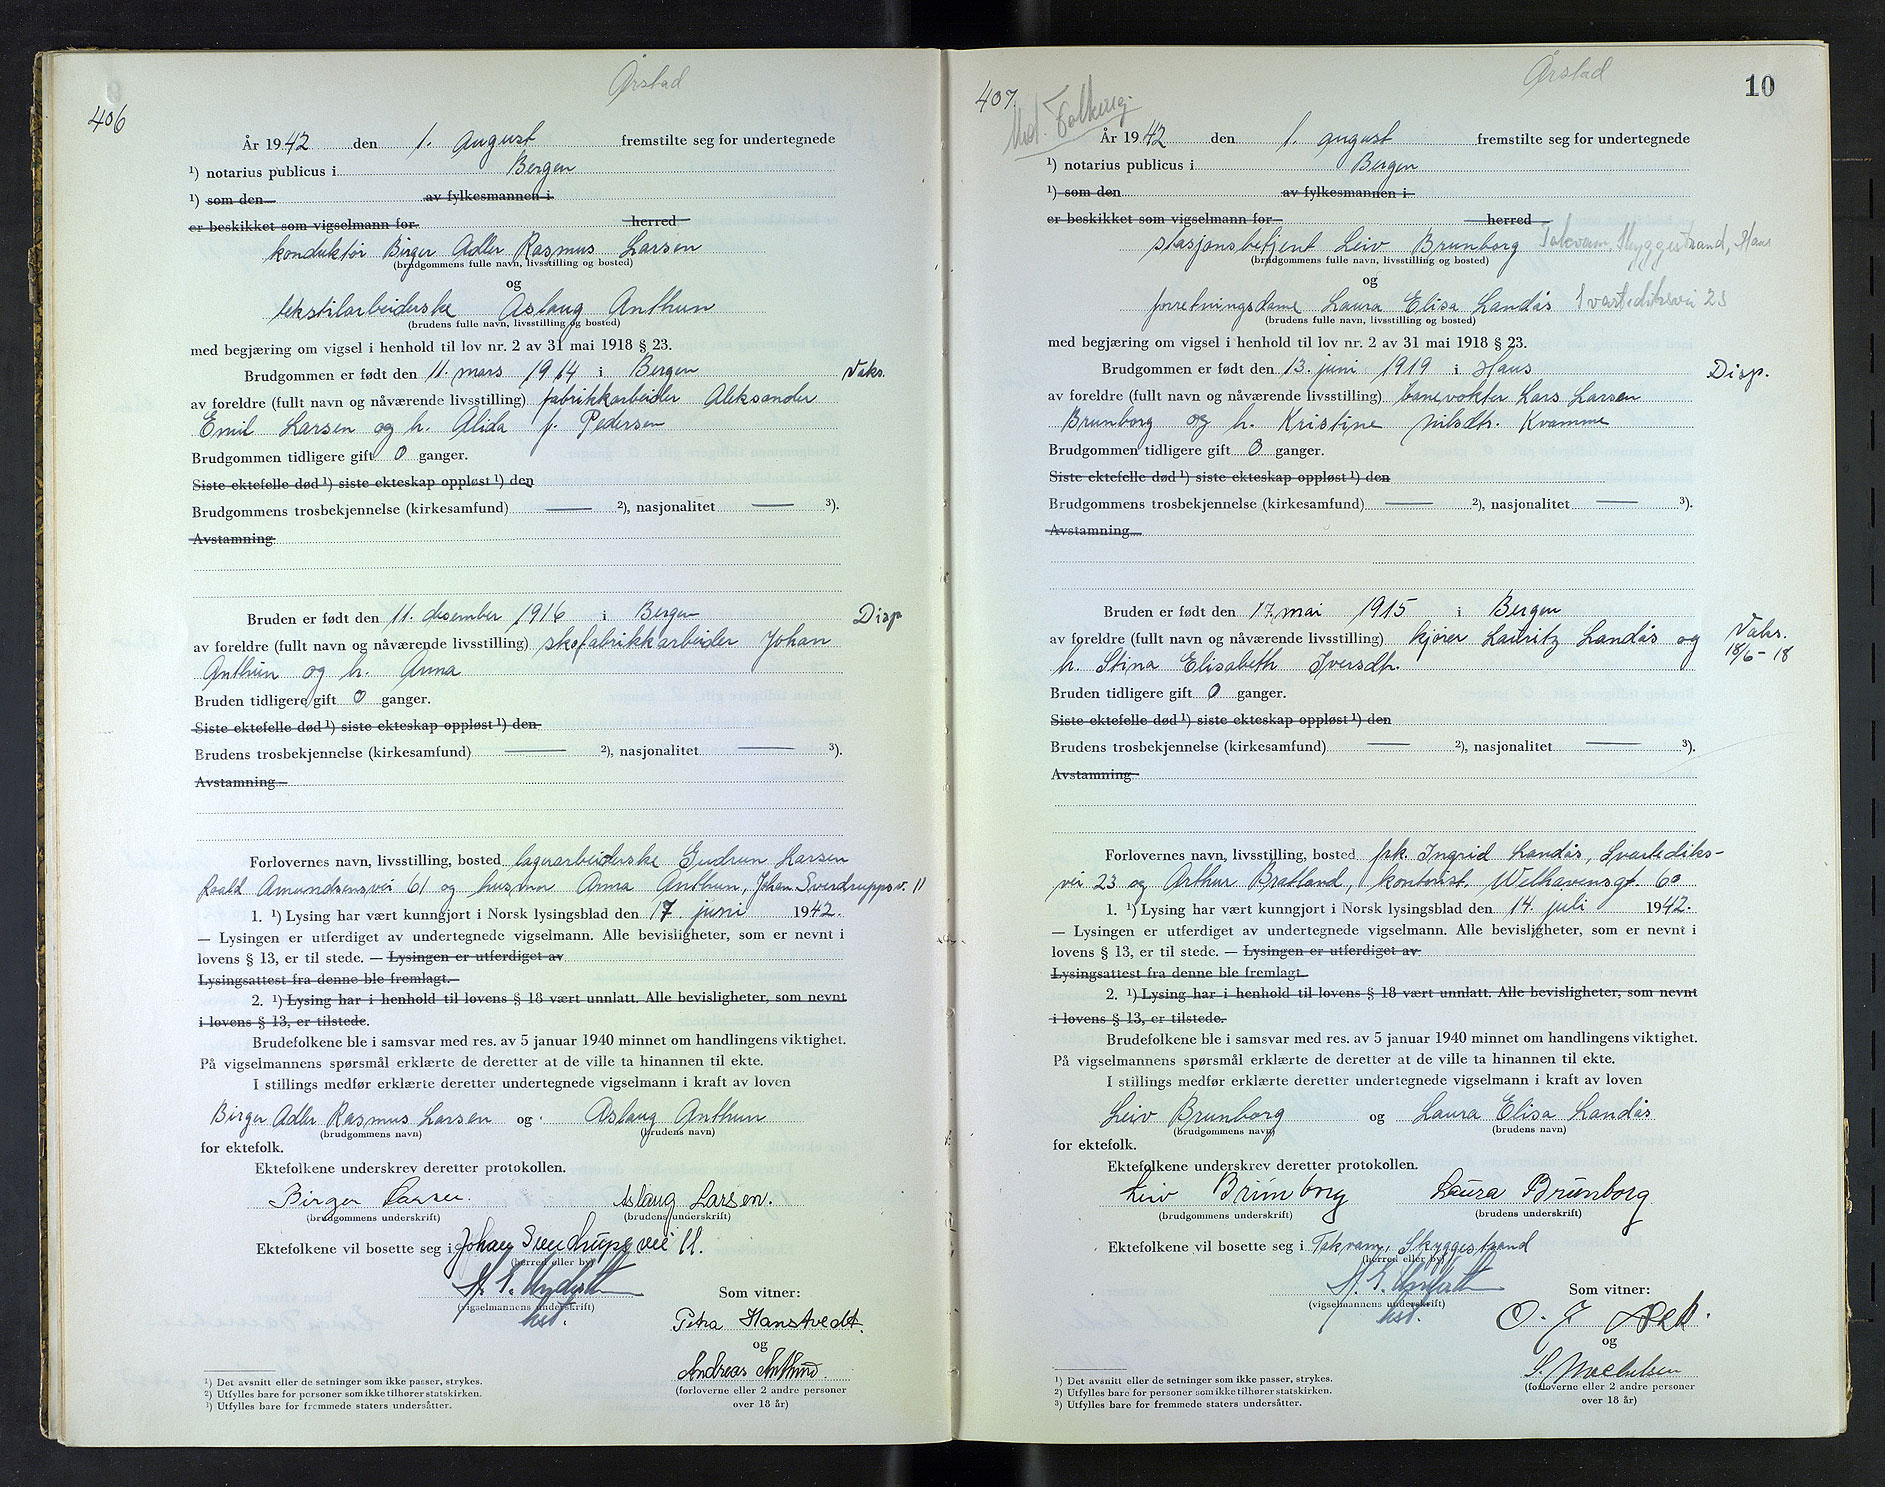 Årstad
406
År 1942 den 1. august fremstilte seg for undertegnede
¹) notarius publicus i Bergen
¹) som den av fylkesmannen i
er beskikket som vigselmann for herred
konduktør Birger Adler Rasmus Larsen
(brudgommens fulle navn, livsstilling og bosted)
og
tekstilarbeiderske Aslaug Anthun
(brudens fulle navn, livsstilling og bosted)
med begjæring om vigsel i henhold til lov nr. 2 av 31 mai 1918 § 23.
Brudgommen er født den 11. mars 1914 i Bergen Vaks.
av foreldre (fullt navn og nåværende livsstilling) fabrikkarbeider Aleksander
Emil Larsen og h. Alida f. Pedersen
Brudgommen tidligere gift 0 ganger.
Siste ektefelle død ¹) siste ekteskap oppløst ¹) den
Brudgommens trosbekjennelse (kirkesamfund) — ²), nasjonalitet — ³).
Avstamning
Bruden er født den 11. desember 1916 i Bergen Disp
av foreldre (fullt navn og nåværende livsstilling) skofabrikkarbeider Johan
Anthun og h. Anna
Bruden tidligere gift 0 ganger.
Siste ektefelle død ¹) siste ekteskap oppløst ¹) den
Brudens trosbekjennelse (kirkesamfund) — ²), nasjonalitet — ³).
Avstamning
Forlovernes navn, livsstilling, bosted lagerarbeiderske Gudrun Larsen
Roald Amundsensvei 61 og husmor Anna Anthun, Johan Sverdruppsv. 11
1. ¹) Lysing har vært kunngjort i Norsk lysingsblad den 17. juni 1942.
— Lysingen er utferdiget av undertegnede vigselmann. Alle bevisligheter, som er nevnt i
lovens § 13, er til stede. — Lysingen er utferdiget av
Lysingsattest fra denne ble fremlagt.
2. ¹) Lysing har i henhold til lovens § 18 vært unnlatt. Alle bevisligheter, som nevnt
i lovens § 13, er tilstede.
Brudefolkene ble i samsvar med res. av 5 januar 1940 minnet om handlingens viktighet.
På vigselmannens spørsmål erklærte de deretter at de ville ta hinannen til ekte.
I stillings medfør erklærte deretter undertegnede vigselmann i kraft av loven
Birger Adler Rasmus Larsen og Aslaug Anthun
(brudgommens navn) (brudens navn)
for ektefolk.
Ektefolkene underskrev deretter protokollen.
Birger Larsen. Aslaug Larsen.
(brudgommens underskrift) (brudens underskrift)
Ektefolkene vil bosette seg i Johan Sverdrupsvei 11.
(herred eller by)
(vigselmannens underskrift)
kst.
Som vitner:
Petra Hanstvedt.
og
Andreas Anthun.
(forloverne eller 2 andre personer
over 18 år)
¹) Det avsnitt eller de setninger som ikke passer, strykes.
²) Utfylles bare for personer som ikke tilhører statskirken.
³) Utfylles bare for fremmede staters undersåtter.
Årstad
10
407.
Med. Folkereg.
År 1942 den 1. august fremstilte seg for undertegnede
¹) notarius publicus i Bergen
¹) som den av fylkesmannen i
er beskikket som vigselmann for herred
stasjonsbetjent Leiv Brunborg Takvam, Skyggestrand, Haus
(brudgommens fulle navn, livsstilling og bosted)
og
forretningsdame Laura Elisa Landås Svartediksvei 23
(brudens fulle navn, livsstilling og bosted)
med begjæring om vigsel i henhold til lov nr. 2 av 31 mai 1918 § 23.
Brudgommen er født den 13. juni 1919 i Haus Disp.
av foreldre (fullt navn og nåværende livsstilling) banevokter Lars Larsen
Brunborg og h. Kristine Nilsdtr. Kvamme
Brudgommen tidligere gift 0 ganger.
Siste ektefelle død ¹) siste ekteskap oppløst ¹) den
Brudgommens trosbekjennelse (kirkesamfund) — ²), nasjonalitet — ³).
Avstamning
Bruden er født den 17. mai 1915 i Bergen
av foreldre (fullt navn og nåværende livsstilling) kjører Lauritz Landås og Vaks.
h. Stina Elisabeth Iversdtr. 18/6-18
Bruden tidligere gift 0 ganger.
Siste ektefelle død ¹) siste ekteskap oppløst ¹) den
Brudens trosbekjennelse (kirkesamfund) — ²), nasjonalitet — ³).
Avstamning
Forlovernes navn, livsstilling, bosted frk. Ingrid Landås, Svartediks-
vei 23 og Arthur Bratland, kontorist, Welhavensgt. 60
1. ¹) Lysing har vært kunngjort i Norsk lysingsblad den 14. juli 1942.
— Lysingen er utferdiget av undertegnede vigselmann. Alle bevisligheter, som er nevnt i
lovens § 13, er til stede. — Lysingen er utferdiget av
Lysingsattest fra denne ble fremlagt
2. ¹) Lysing har i henhold til lovens § 18 vært unnlatt. Alle bevisligheter, som nevnt
i lovens § 13, er tilstede.
Brudefolkene ble i samsvar med res. av 5 januar 1940 minnet om handlingens viktighet.
På vigselmannens spørsmål erklærte de deretter at de ville ta hinannen til ekte.
I stillings medfør erklærte deretter undertegnede vigselmann i kraft av loven
Leiv Brunborg og Laura Elisa Landås
(brudgommens navn) (brudens navn)
for ektefolk.
Ektefolkene underskrev deretter protokollen.
Leiv Brunborg Laura Brunborg
(brudgommens underskrift) (brudens underskrift)
Ektefolkene vil bosette seg i Takvam, Skyggestrand
(herred eller by)
(vigselmannens underskrift)
kst.
Som vitner:
og
(forloverne eller 2 andre personer
over 18 år)
¹) Det avsnitt eller de setninger som ikke passer, strykes.
²) Utfylles bare for personer som ikke tilhører statskirken.
³) Utfylles bare for fremmede staters undersåtter.